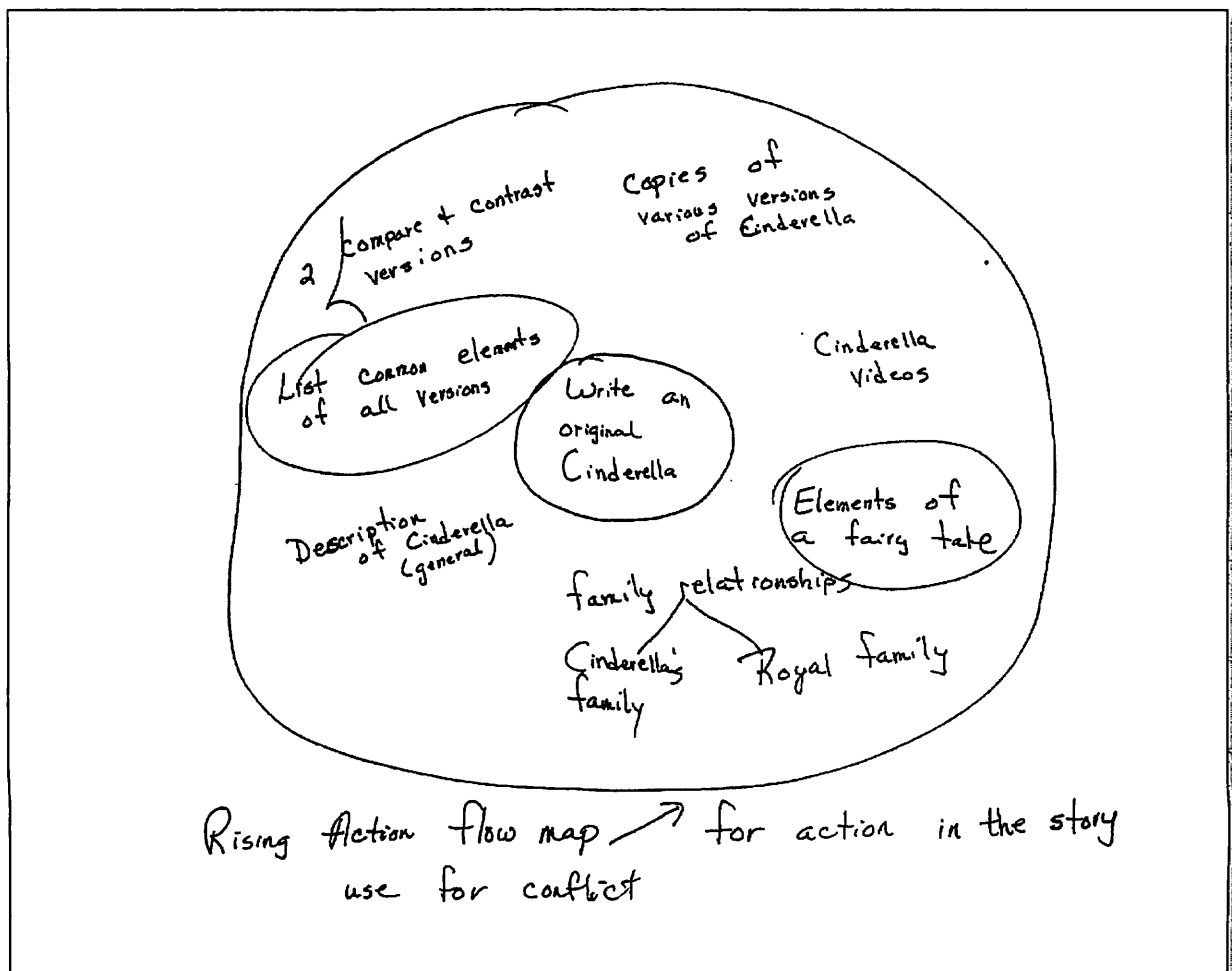 2 Compare & contrast
versions
Copies of
various versions
of Cinderella
List common elements
of all versions
Write an
original
Cinderella
Cinderella
Videos
Elements of
a fairy tale
Description
of Cinderella
(general)
family relationships
Cinderella's
family
Royal family
Rising Action flow map → for action in the story
use for conflict